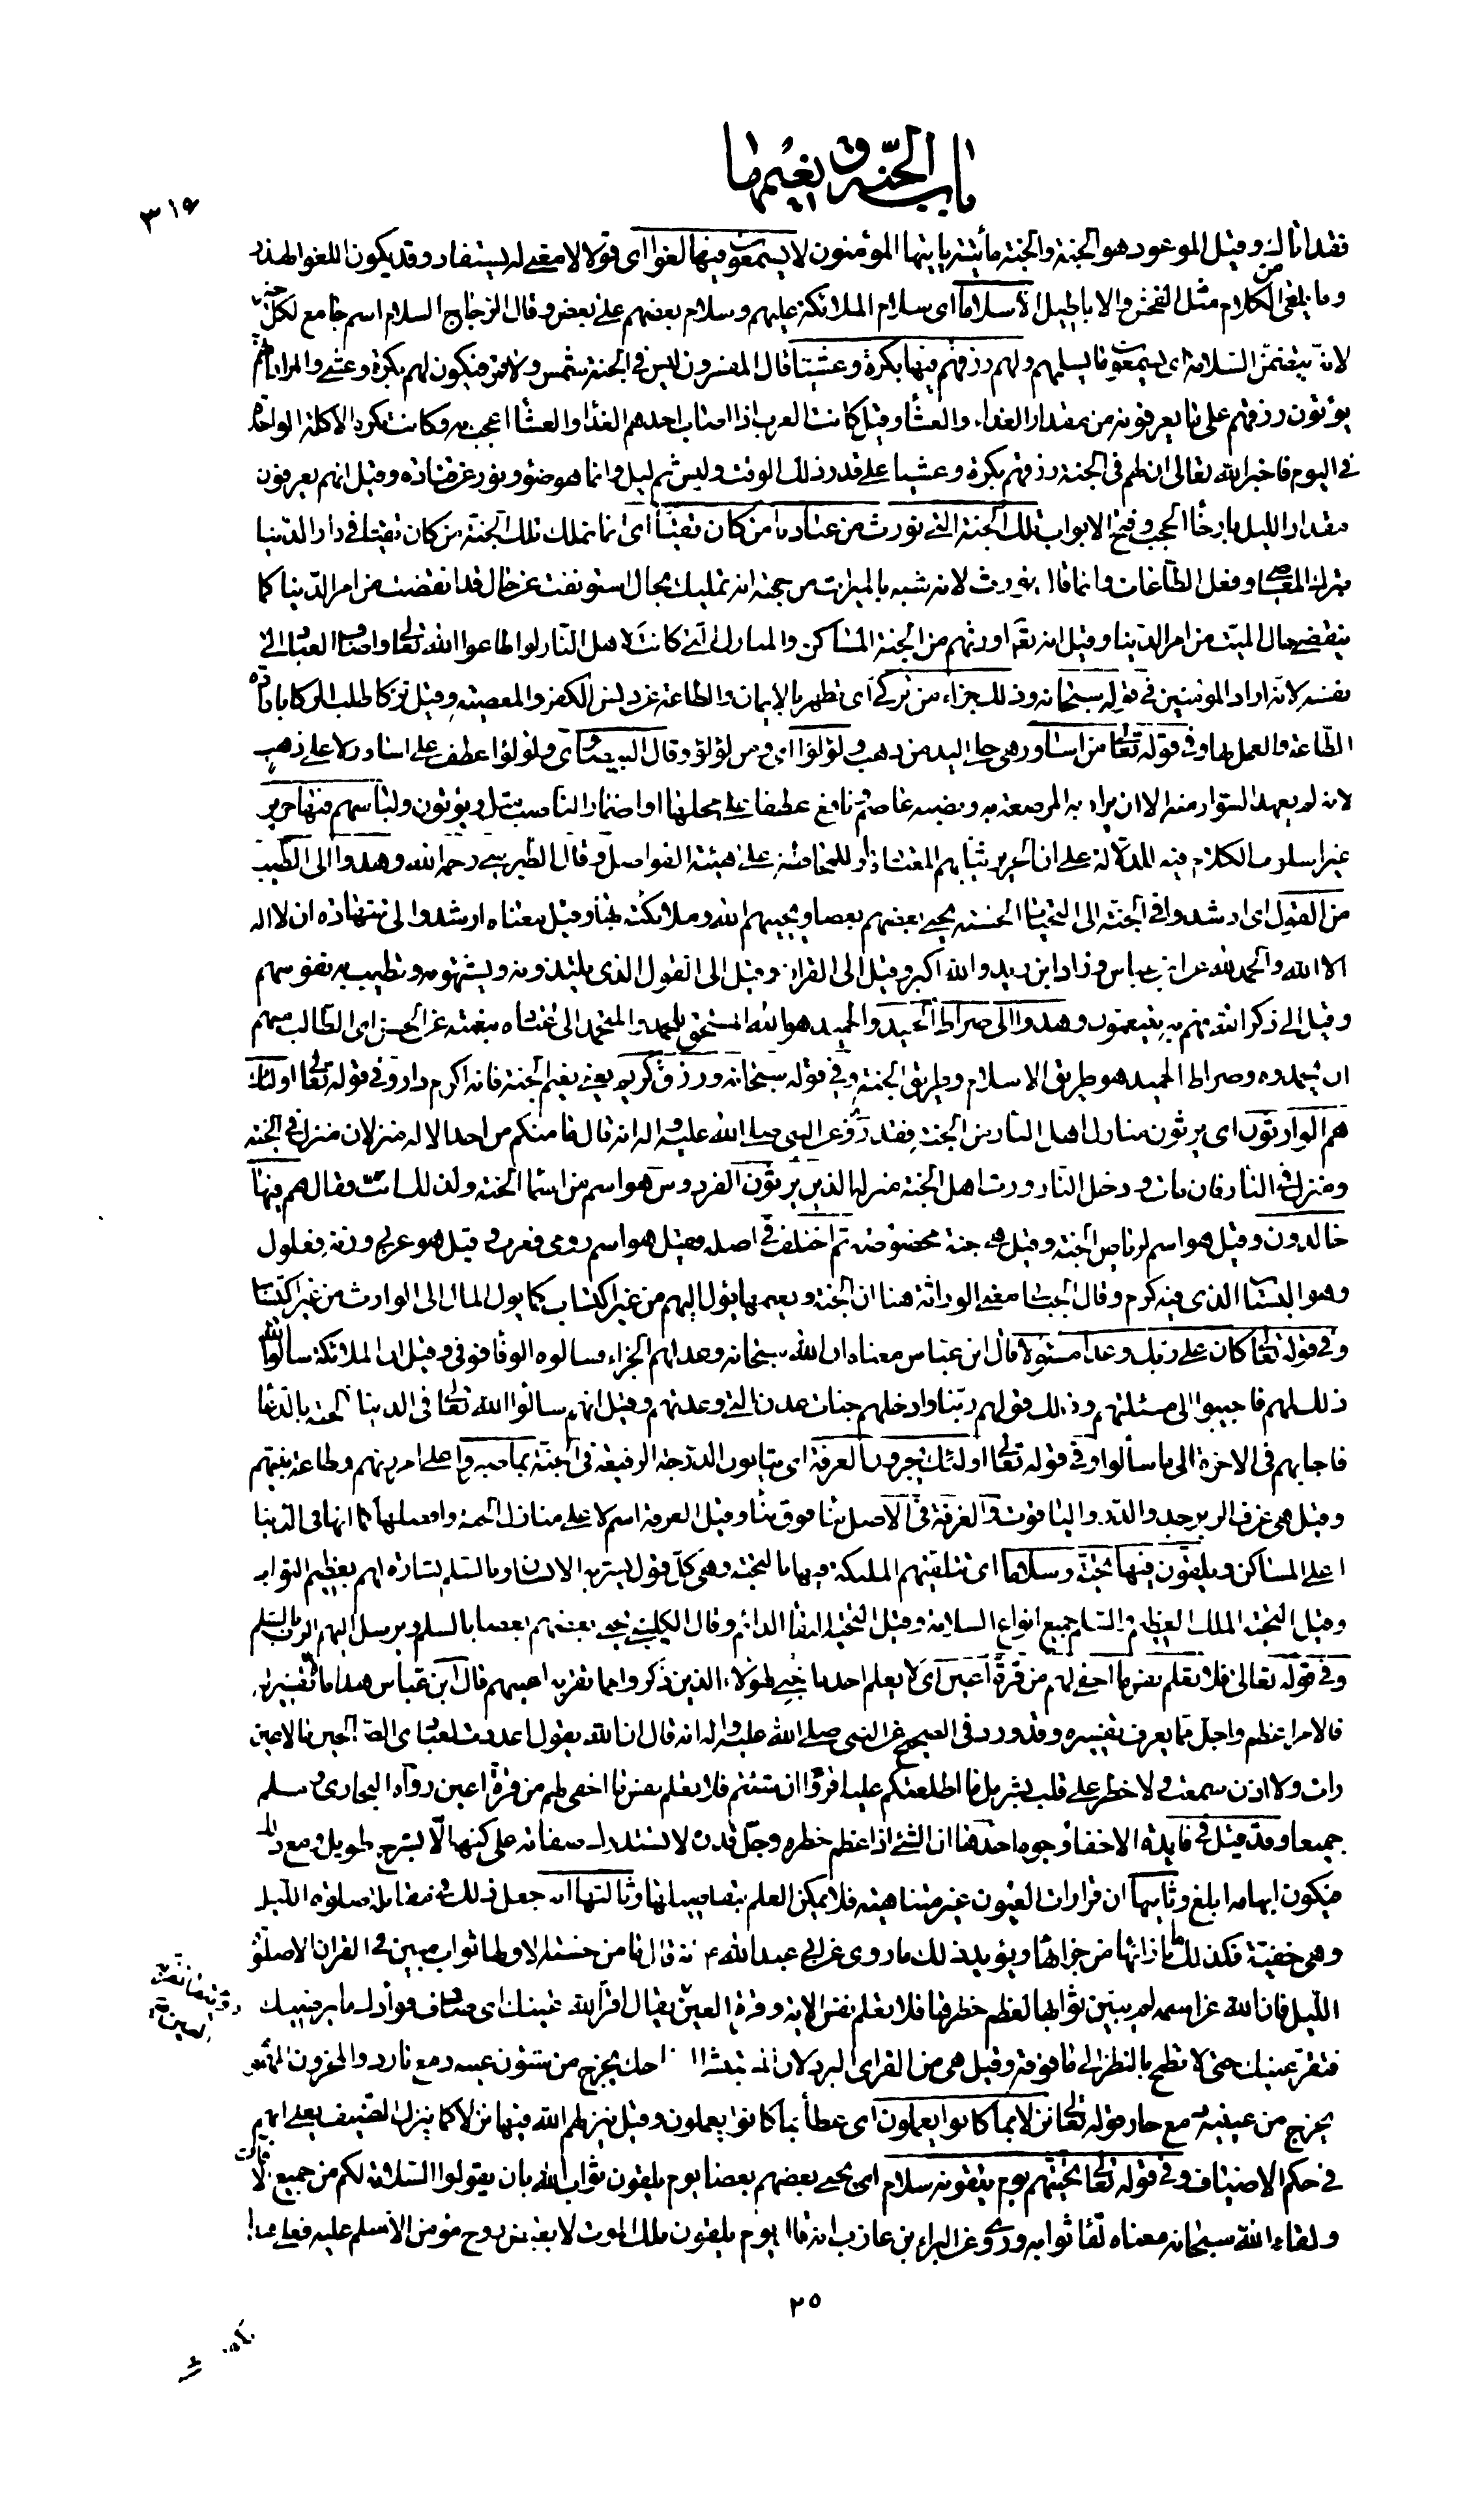 باب الجنة و نعيمها
٣١٤
فقد اتاك وقيل الموعود هو الجنة والجنة مأتية يأتيها المؤمنون لا يسمعون فيها لغوا اى قولا لا معنى له يستفاد وقد يكون اللغو الهذر
وما يلغى من الكلام مثل الفحش والاباطيل الا سلاما اى سلام الملائكة عليهم وسلام بعضهم على بعض وقال الزجاج السلام اسم جامع لكل خير
لانه يتضمن السلامة اى يسمعون ما يسلمهم ولهم رزقهم فيها بكرة وعشيا قال المفسرون ليس فى الجنة شمس ولا قمر فيكون لهم بكرة وعشى والمراد انهم
يؤتون رزقهم على ما يعرفونه من مقدار الغداء والعشاء وقيل كانت العرب اذا اصاب احدهم الغداء والعشاء اعجب به وكانت تكره الاكلة الواحدة
فى اليوم فاخبر الله تعالى ان لهم فى الجنة رزقهم بكرة وعشيا على قدر ذلك الوقت وليس ثم ليل وانما هو ضوء ونور عن قتادة وقيل انهم يعرفون
مقدار الليل بارخاء الحجب وفتح الابواب تلك الجنة التى نورث من عبادنا من كان تقيا اى انما نملك تلك الجنة من كان تقيا فى دار الدنيا
بترك المعاصى وفعل الطاعات وانما قال نورث لانه شبه بالميراث من جهة انه تمليك بحال استونفت عن حال قد انقضت من امر الدنيا كما
ينقضى حال الميت من امر الدنيا وقيل انه تعالى اورثهم من الجنة المساكن والمنازل التى كانت لاهل النار لو اطاعوا الله تعالى واضاف العباد الى
نفسه لانه اراد المؤمنين فى قوله سبحانه وذلك جزاء من تزكى اى تطهر بالايمان والطاعة عن دنس الكفر والمعصية وقيل تزكى طلب الزكا بارادة
الطاعة والعمل بها وفى قوله تعالى من اساور وهى حلى اليد من ذهب ولؤلؤا اى ومن لؤلؤ وقال البيضاوى ولؤلؤا عطف على اساور لا على ذهب
لانه لم يعهد السوار منه الا ان يراد به المرصعة به ونصبه عاصم ونافع عطفا على محلها او اضمار الناصب مثل ويؤتون ولباسهم فيها حرير
غير اسلوب الكلام فيه للدلالة على ان الحرير ثيابهم المعتادة او للمحافظة على هيئة الفواصل وقال الطبرسى رحمه الله وهدوا الى الطيب
من القول اى ارشدوا فى الجنة الى التحيات الحسنة يحيى بعضهم بعضا ويحييهم الله وملائكته بها وقيل معناه ارشدوا الى شهادة ان لا اله
الا الله والحمد لله عن ابن عباس وزاد ابن زيد والله اكبر وقيل الى القران وقيل الى القول الذى يلتذونه ويشتهونه وتطيب به نفوسهم
وقيل الى ذكر الله فهم به يتنعمون وهدوا الى صراط الحميد والحميد هو الله المستحق للحمد المتحمد الى عباده بنعمته عن الحسن اى الطالب منهم
ان يحمدوه وصراط الحميد هو طريق الاسلام وطريق الجنة وفى قوله سبحانه ورزق كريم يعنى نعيم الجنة فانه اكرم دار وفى قوله تعالى اولئك
هم الوارثون اى يرثون منازل اهل النار من الجنة فقد روى عن النبى صلى الله عليه واله انه قال ما منكم من احد الا له منزلان منزل فى الجنة
ومنزل فى النار فان مات ودخل النار ورث اهل الجنة منزله الذين يرثون الفردوس هو اسم من اسماء الجنة ولذلك انث وقال هم فيها
خالدون وقيل هو اسم لرياض الجنة وقيل هى جنة مخصوصة ثم اختلف فى اصله فقيل هو اسم رومى فعرب وقيل هو عربى وزنه فعلول
وهو البستان الذى فيه كرم وقال الجبائى معنى الوراثة هنا ان الجنة ونعيمها يؤل اليهم من غير اكتساب كما يؤل المال الى الوارث من غير اكتساب
وفى قوله تعالى كان على ربك وعدا مسئولا قال ابن عباس معناه ان الله سبحانه وعد لهم الجزاء فسالوه الوفا فوفى وقيل ان الملائكة سالوا الله
ذلك لهم فاجيبوا الى مسئلتهم وذلك قولهم ربنا وادخلهم جنات عدن التى وعدتهم وقيل انهم سالوا الله تعالى فى الدنيا الجنة بالدعا
فاجابهم فى الاخرة الى ما سألوا وفى قوله تعالى اولئك يجزون الغرفة اى يثابون الدرجة الرفيعة فى الجنة بما صبروا على امر ربهم وطاعة نبيهم
وقيل هى غرف الزبرجد والدر والياقوت والغرفة فى الاصل بناء فوق بناء وقيل الغرفة اسم لاعلى منازل الجنة وافضلها كما انها فى الدنيا
اعلى المساكن ويلقون فيها تحية وسلاما اى تتلقيهم الملئكة فيها بالتحية وهى كل قول يسر به الانسان وبالسلم بشارة لهم بعظيم الثواب
وقيل التحية الملك العظيم والسلم جميع انواع السلامة وقيل التحية البقاء الدائم وقال الكلبى يحيى بعضهم بعضا بالسلم ويرسل اليهم الرب بالسلم
وفى قوله تعالى فلا تعلم نفس ما اخفى لهم من قرة اعين اى لا يعلم احد ما خبى لهؤلاء الذين ذكروا مما تقر به اعينهم قال ابن عباس هذا ما لا تفسير له
فالامر اعظم واجل مما يعرف تفسيره وقد ورد فى الصحيح عن النبى صلى الله عليه واله انه قال ان الله يقول اعددت لعبادى الصالحين ما لا عين
رات ولا اذن سمعت ولا خطر على قلب بشر بل ما اطلعتكم عليه اقرؤا ان شئتم فلا تعلم نفس ما اخفى لهم من قرة اعين رواه البخارى ومسلم
جميعا وقد قيل فى فايدة الاخفاء وجوه احدها ان الشئ اذا عظم خطره وجل قدره لا تستدرك صفاته على كنهها الا بشرح طويل ومع ذلك
فيكون ابهامه ابلغ وثانيها ان قرارات العيون غير متناهية فلا يمكن العلم بتفاصيلها وثالثها انه جعل ذلك فى مقابلة صلوة الليل
وهى خفية فكذلك ما بازائها من جزائها ويؤيد ذلك ما روى عن ابى عبد الله ع انه قال ما من حسنة الا ولها ثواب مبين فى القران الا صلوة
الليل فان الله عز اسمه لم يبين ثوابها لعظم خطرها فلا تعلم نفس الاية وقرة العين يقال اقر الله عينك اى صادف فؤادك ما يرضيك
فتقر عينك حتى لا تطمح بالنظر الى ما فوقه وقيل هى من القر اى البرد لان المستبشر الضاحك يخرج من شئون عينه دمع بارد والمحزون المهتم
يخرج من عينيه دمع حار وقوله تعالى نزلا بما كانوا يعملون اى عطاء بما كانوا يعملون وقيل ينزلهم الله فيها نزلا كما ينزل الضيف يعنى انهم
فى حكم الاضياف وفى قوله تعالى تحيتهم يوم يلقونه سلام اى يحيى بعضهم بعضا يوم يلقون ثواب الله بان يقولوا السلامة لكم من جميع الافات
ولقاء الله سبحانه معناه لقاء ثوابه وروى عن البراء بن عازب انه قال يوم يلقون ملك الموت لا يقبض روح مؤمن الا سلم عليه فعلى هذا
٢٥